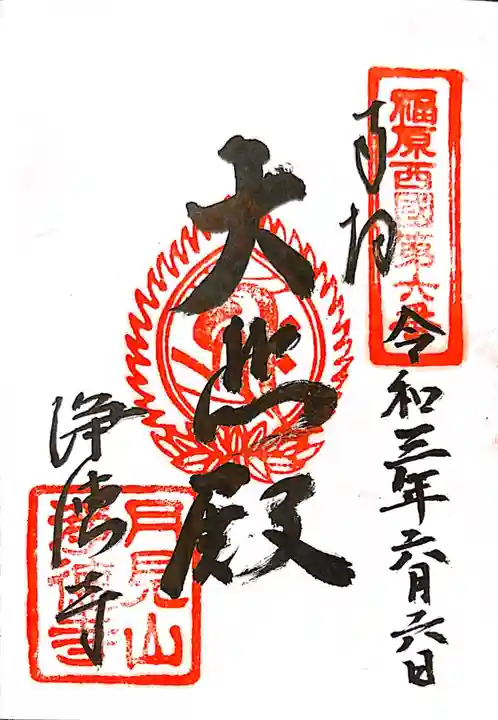 福原西國第六番
奉拝
令和三年六月六日
大悲殿
月見山
浄徳寺